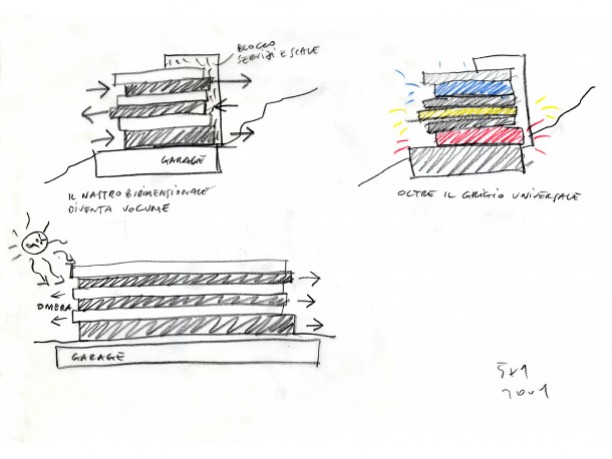 BLOCCO
SERVIZI E SCALE
GARAGE
IL NASTRO BIDIMENSIONALE
DIVENTA VOLUME
OLTRE IL GRIGIO UNIVERSALE
OMBRA
GARAGE
2001